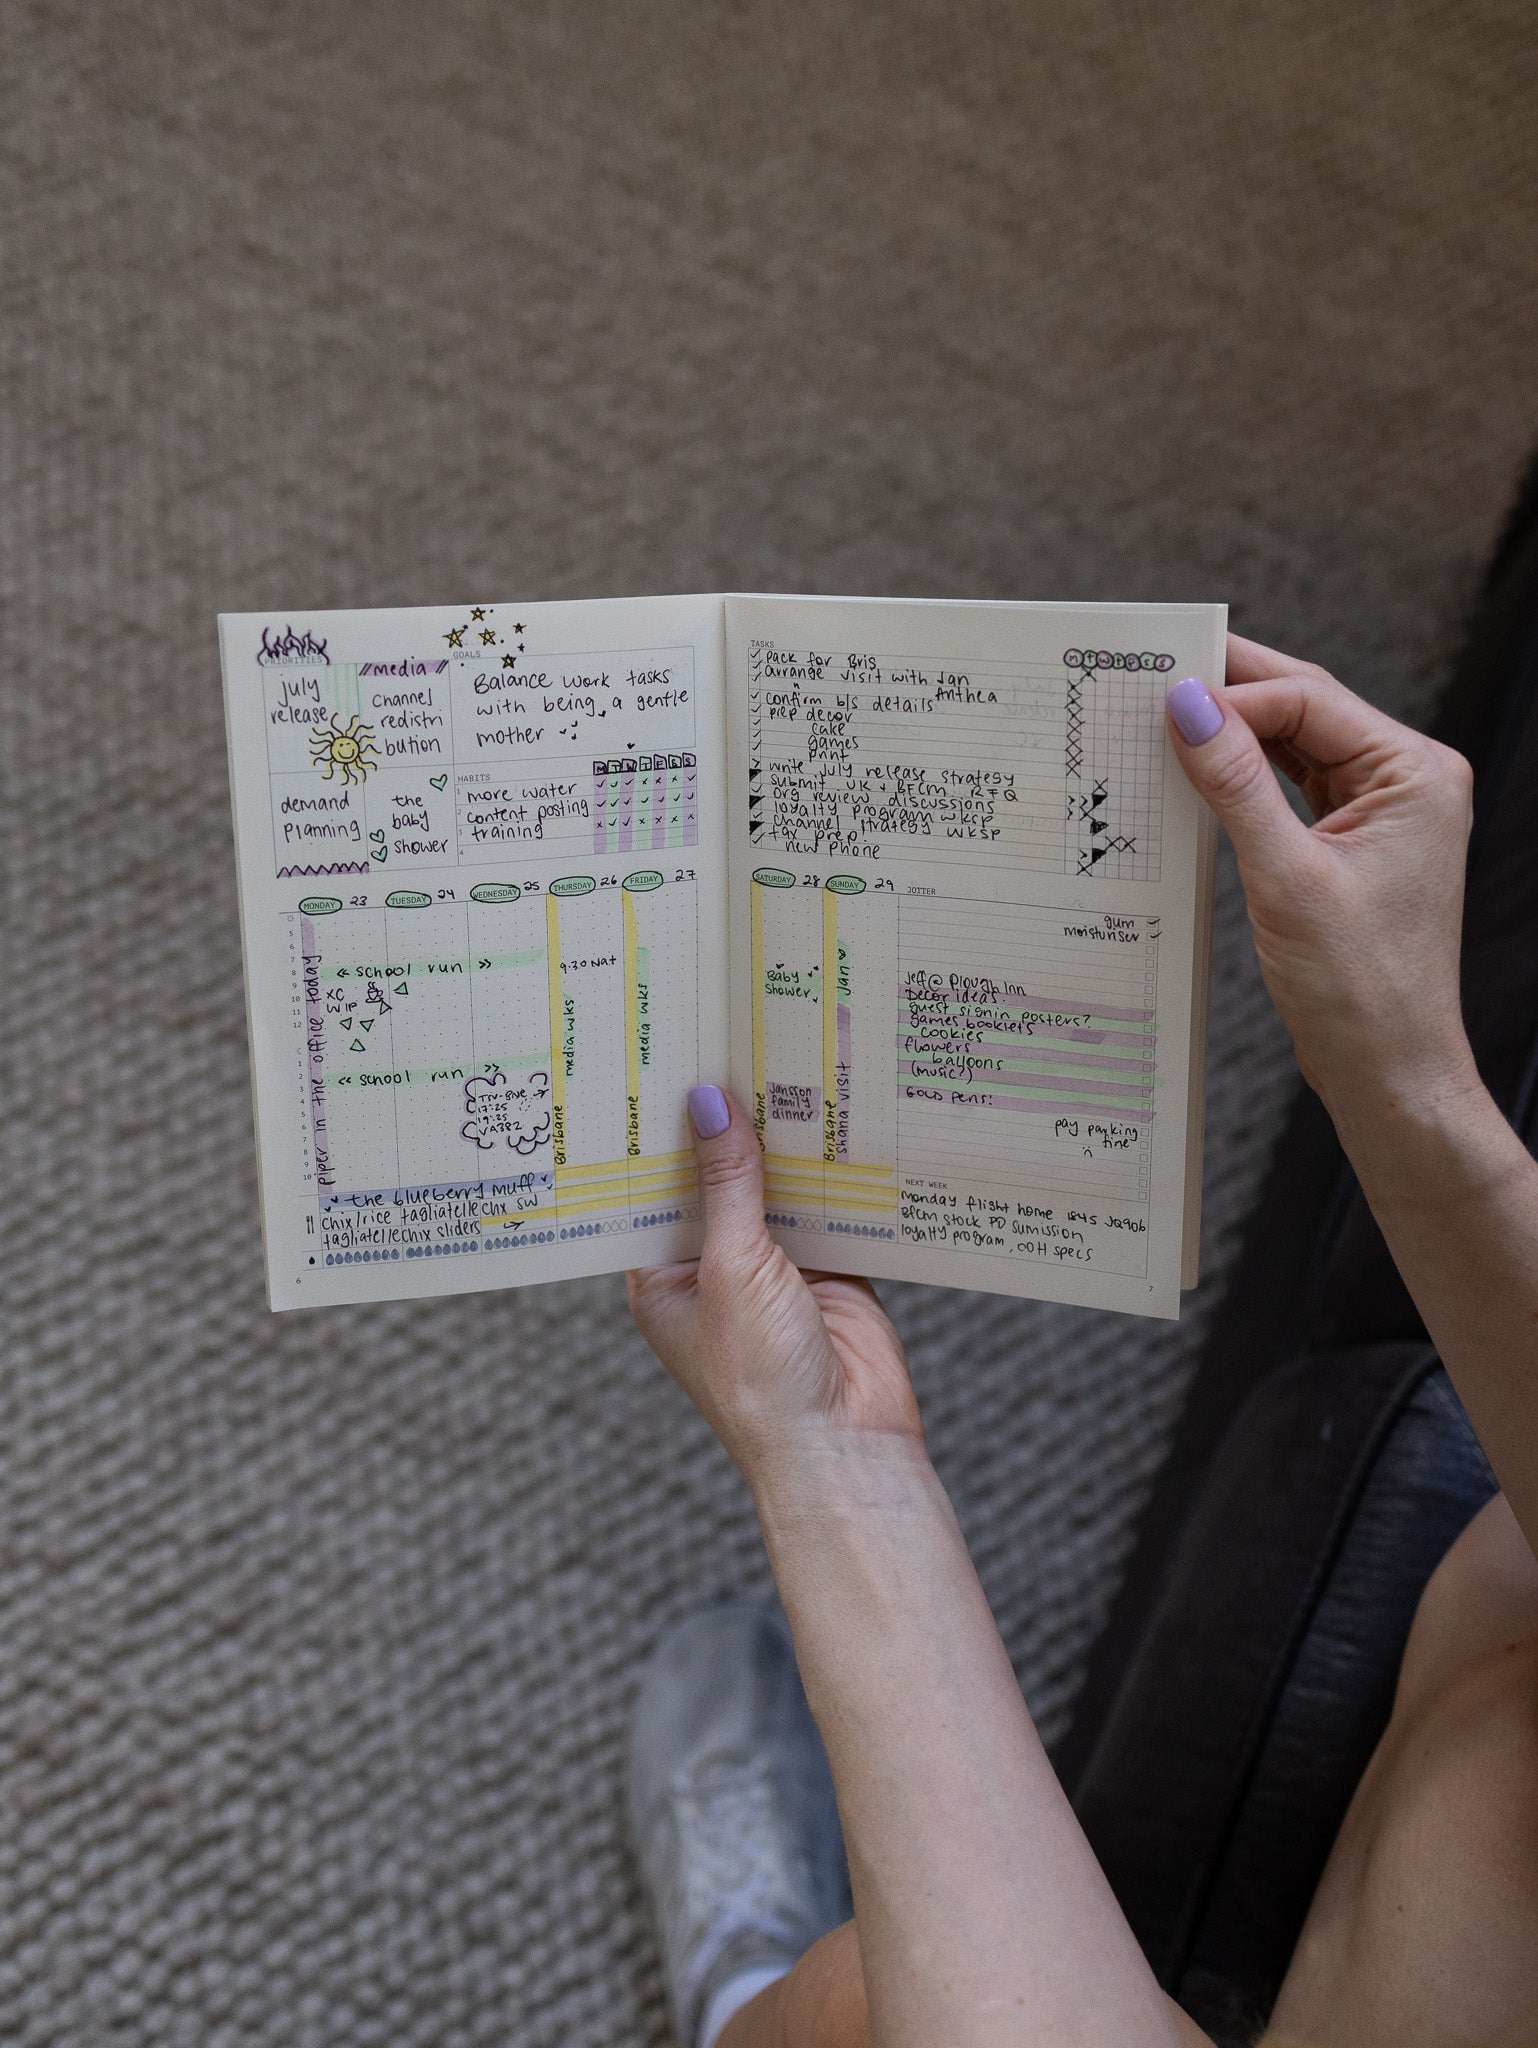 PRIORITIES
july
release
//media//
channel
redistri
bution
demand
planning
the
baby
shower
GOALS
Balance work tasks
with being a gentle
mother
HABITS
M T W T F S S
1 more water
2 content posting
3 training
4
MONDAY 23
TUESDAY 24
WEDNESDAY 25
THURSDAY 26
FRIDAY 27
piper in the office today
« school run »
XC
WIP
« school run »
TSV-BNE
17:25
19:25
VA382
9.30 Nat
media wks
Brisbane
media wks
Brisbane
the blueberry muff
chix/rice tagliatelle chx sw
tagliatelle chix sliders
6
TASKS
pack for Bris
arrange visit with Jan
Anthea
confirm b/s details
prep decor
cake
games
print
write july release strategy
submit UK + BFCM RFQ
org review discussions
loyalty program wksp
channel strategy wksp
tax prep
new phone
m t w t f s s
SATURDAY 28
SUNDAY 29
Baby
shower
Jansson
family
dinner
Brisbane
Jan
shana visit
Brisbane
JOTTER
gum
moisturiser
Jeff @ Plough Inn
Decor ideas:
guest signin posters?
games booklets
cookies
flowers
balloons
(music?)
Gold pens!
pay parking
fine
NEXT WEEK
monday flight home 1845 JQ906
BFCM stock PO sumission
loyalty program, OOH specs
7